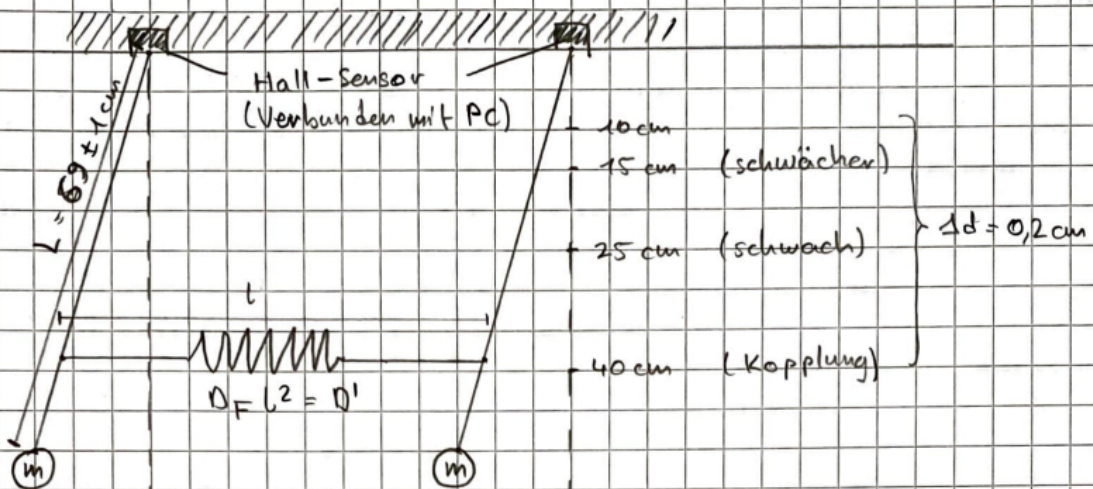 Hall-Sensor
(Verbunden mit PC)
L = 69 ± 1 cm
10 cm
15 cm (schwächer)
25 cm (schwach)
Δd = 0,2 cm
l
40 cm (Kopplung)
D_F l² = D'
m
m